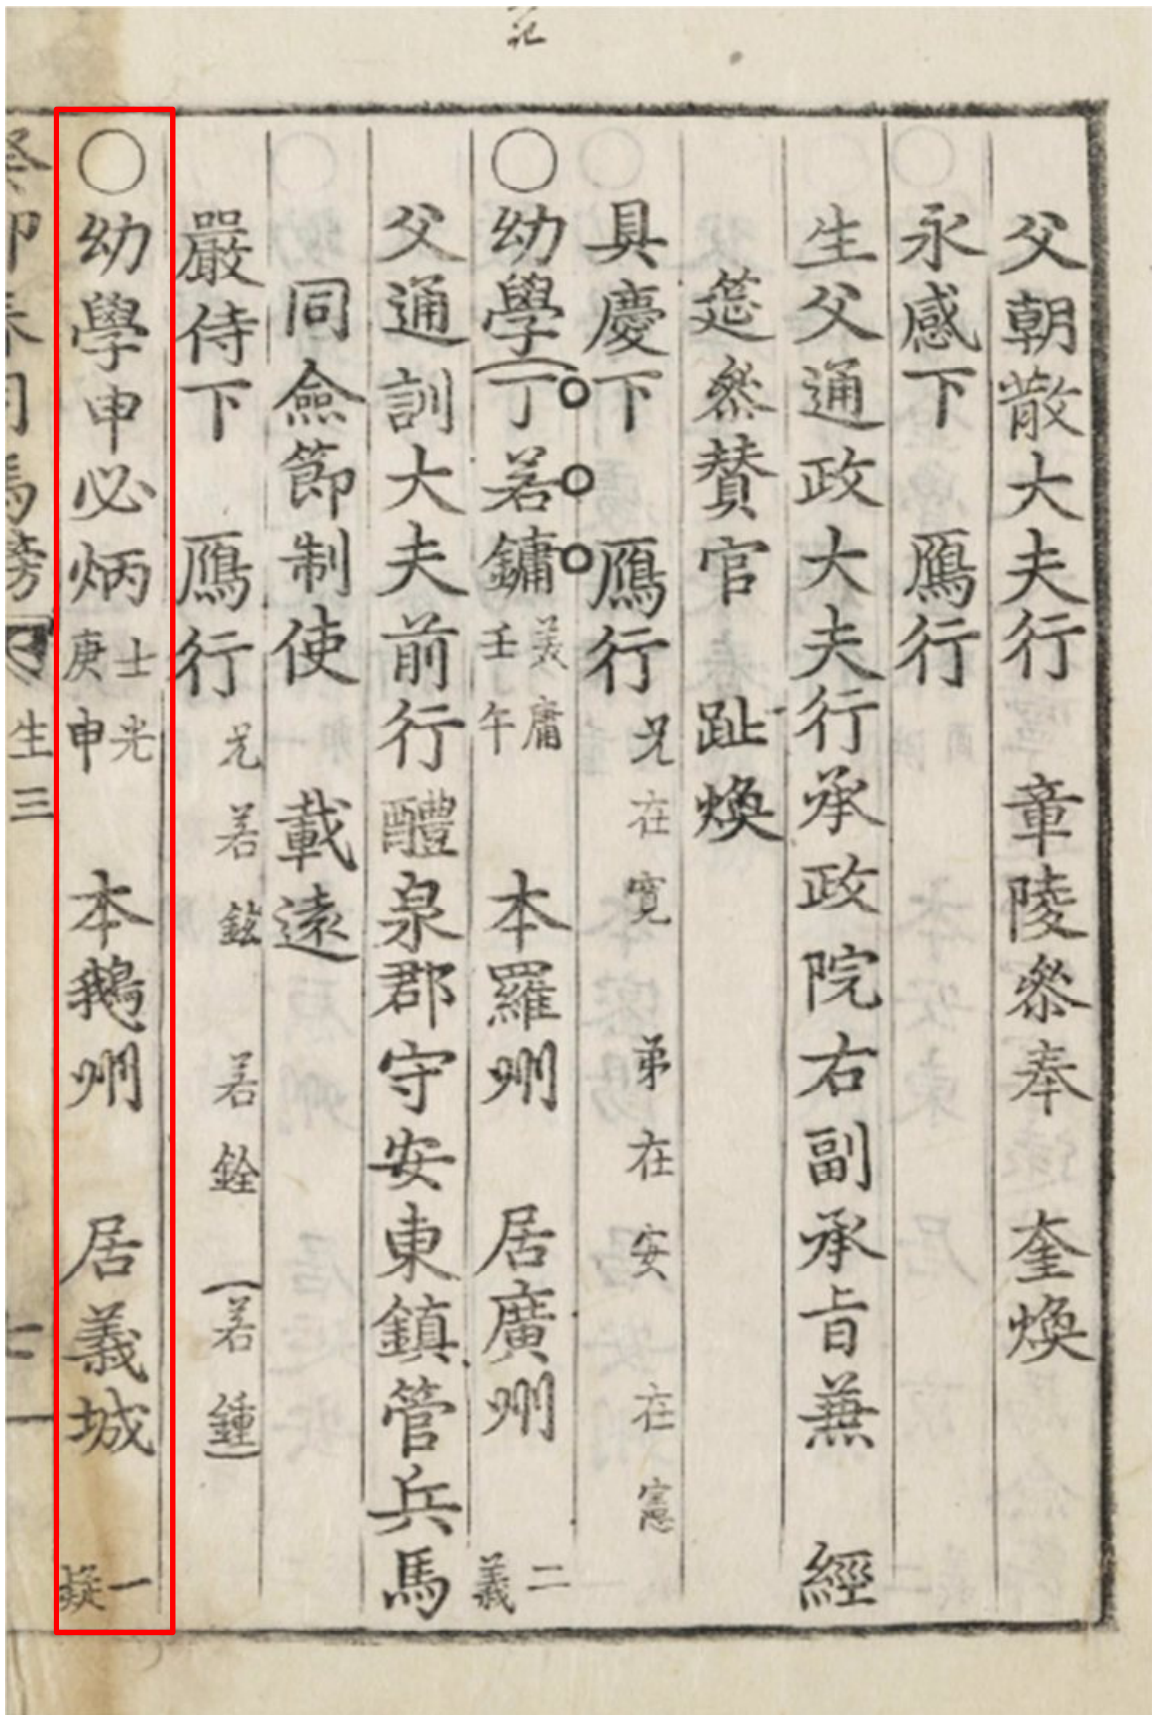 記
父朝散大夫行 章陵叅奉 奎煥
永感下 鴈行
生父通政大夫行承政院右副承旨兼 經
筵叅贊官 趾煥
具慶下 鴈行 兄在寬 弟在安 在憲
○幼學(丁若鏞 美庸 壬午 本羅州 居廣州 二義
父通訓大夫前行醴泉郡守安東鎮管兵馬
同僉節制使 載遠
嚴侍下 鴈行 兄若鉉 若銓 (若鍾)
○幼學申必炳 士光 庚申 本鵝州 居義城 一疑
生三